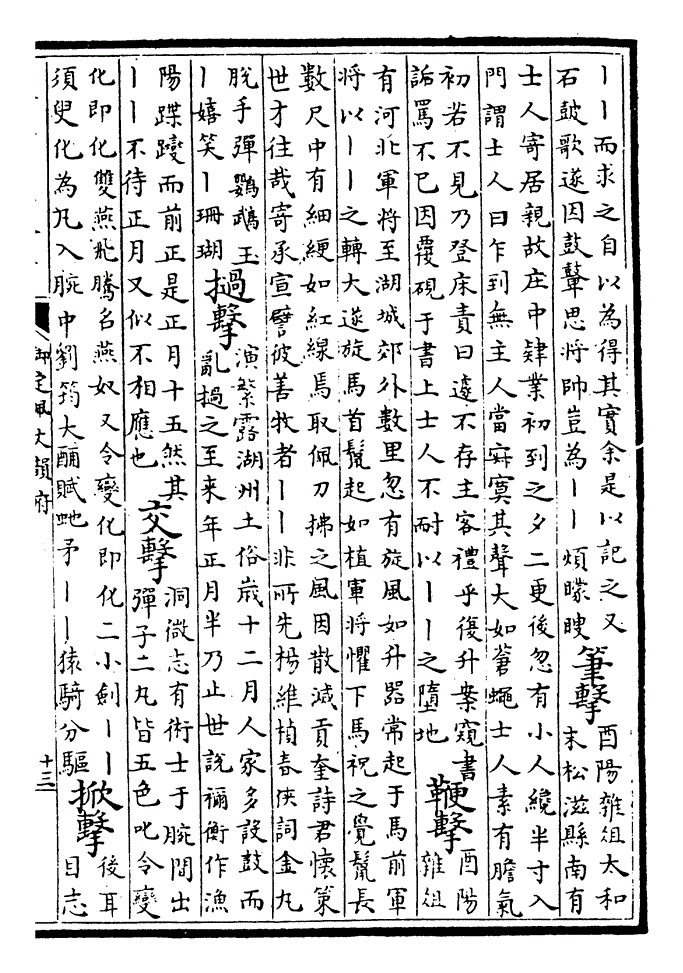 丨丨而求之自以為得其實余是以記之又
石鼓歌遂因鼓鼙思將帥豈為丨丨煩矇瞍
筆擊
酉陽雜俎太和
末松滋縣南有
士人寄居親故庄中肄業初到之夕二更後忽有小人纔半寸入
門謂士人曰乍到無主人當寂寞其聲大如蒼蠅士人素有膽氣
初若不見乃登床責曰遽不存主客禮乎復升案窺書
詬罵不已因覆硯于書上士人不耐以丨丨之墮地
鞭擊
酉陽
雜俎
有河北軍將至湖城郊外數里忽有旋風如升器常起于馬前軍
將以丨丨之轉大遂旋馬首鬣起如植軍將懼下馬祝之覺鬣長
數尺中有細綆如紅線焉取佩刀拂之風因散滅貢奎詩君懷策
世才往哉寄承宣譬彼善牧者丨丨非所先楊維楨春俠詞金丸
脫手彈鸚鵡玉
丨嬉笑丨珊瑚
撾擊
演繁露湖州土俗歲十二月人家多設鼓而
亂撾之至來年正月半乃止世說禰衡作漁
陽蹀躞而前正是正月十五然其
丨丨不待正月又似不相應也
交擊
洞微志有術士于腕間出
彈子二丸皆五色叱令變
化即化雙燕飛騰名燕奴又令變化即化二小劍丨丨
須臾化為丸入腕中劉筠大酺賦虵矛丨丨猿騎分驅
掀擊
後耳
目志
御定佩文韻府
十三